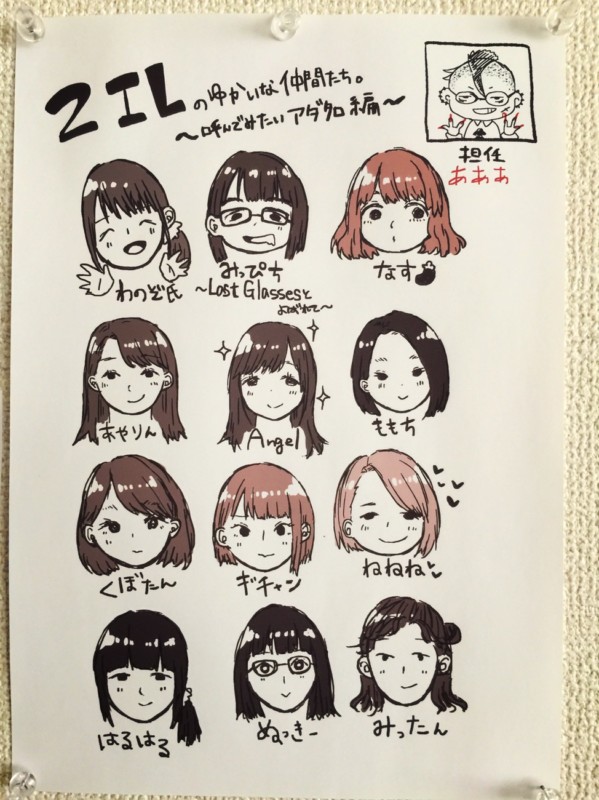 2ILのゆかいな仲間たち。
〜呼んでみたいアダ名編〜
担任
あああ
わのぞ氏
みっぴち
〜Lost Glassesと
よばれて〜
なす
あやりん
Angel
ももち
くぼたん
ギチャン
ねねね
はるはる
ぬっきー
みったん